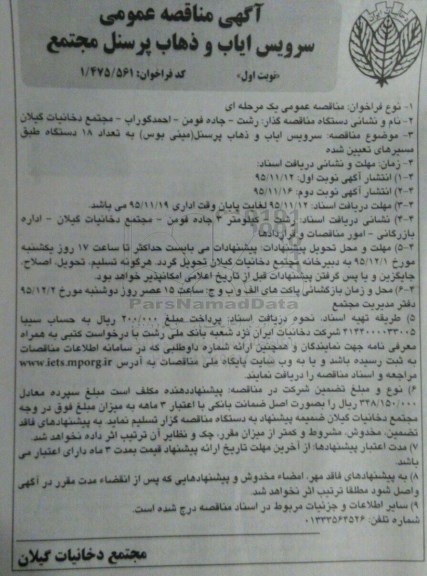 آگهی مناقصه عمومی
سرویس ایاب و ذهاب پرسنل مجتمع
«نوبت اول»
کد فراخوان: ۱/۴۷۵/۵۶۱
۱- نوع فراخوان: مناقصه عمومی یک مرحله ای
۲- نام و نشانی دستگاه مناقصه گذار: رشت - جاده فومن - احمدگوراب - مجتمع دخانیات گیلان
۳- موضوع مناقصه: سرویس ایاب و ذهاب پرسنل(مینی بوس) به تعداد ۱۸ دستگاه طبق
مسیرهای تعیین شده
۳- زمان، مهلت و نشانی دریافت اسناد:
۳-۱) انتشار آگهی نوبت اول: ۹۵/۱۱/۱۲
۳-۲) انتشار آگهی نوبت دوم: ۹۵/۱۱/۱۶
۳-۳) مهلت دریافت اسناد: ۹۵/۱۱/۱۲ لغایت پایان وقت اداری ۹۵/۱۱/۱۹ می باشد.
۳-۴) نشانی دریافت اسناد: رشت - کیلومتر ۳ جاده فومن - مجتمع دخانیات گیلان - اداره
بازرگانی - امور مناقصات و قراردادها
۳-۵) مهلت و محل تحویل پیشنهادات: پیشنهادات می بایست حداکثر تا ساعت ۱۷ روز یکشنبه
مورخ ۹۵/۱۲/۱ به دبیرخانه مجتمع دخانیات گیلان تحویل گردد. هرگونه تسلیم، تحویل، اصلاح،
جایگزین و یا پس گرفتن پیشنهادات قبل از تاریخ اعلامی امکانپذیر خواهد بود.
۳-۶) محل و زمان بازگشائی پاکت های الف و ب و ج: ساعت ۱۵ عصر روز دوشنبه مورخ ۹۵/۱۲/۲
دفتر مدیریت مجتمع
ParsNamadData
۵) طریقه تهیه اسناد: نحوه دریافت اسناد: پرداخت مبلغ ۲۰۰/۰۰۰ ریال به حساب سیبا
۲۱۳۴۰۰۰۰۳۳۰۰۵ شرکت دخانیات ایران نزد شعبه بانک ملی رشت با درخواست کتبی به همراه
معرفی نامه جهت نمایندگان و همچنین ارائه شماره داوطلبی که در سامانه اطلاعات مناقصات
به ثبت رسیده باشد و یا به وب سایت پایگاه ملی مناقصات به آدرس www.iets.mporg.ir
مراجعه و اسناد مناقصه را دریافت نمایند.
۶) نوع و مبلغ تضمین شرکت در مناقصه: پیشنهاددهنده مکلف است مبلغ سپرده معادل
۳۴۸/۱۵۰/۰۰۰ ریال را بصورت اصل ضمانت بانکی با اعتبار ۳ ماهه به میزان مبلغ فوق در وجه
مجتمع دخانیات گیلان ضمیمه پیشنهاد به دستگاه مناقصه گزار تسلیم نماید. به پیشنهادهای فاقد
تضمین، مخدوش، مشروط و کمتر از میزان مقرر، چک و نظایر آن ترتیب اثر داده نخواهد شد.
۷) مدت اعتبار پیشنهادها: از آخرین مهلت تاریخ ارائه پیشنهاد قیمت بمدت ۳ ماه دارای اعتبار می
باشد.
۸) به پیشنهادهای فاقد مهر، امضاء مخدوش و پیشنهادهایی که پس از انقضاء مدت مقرر در آگهی
واصل شود مطلقا ترتیب اثر نخواهد شد.
۹) سایر اطلاعات و جزئیات مربوط در اسناد مناقصه درج شده است.
شماره تلفن: ۰۱۳۳۳۵۶۴۵۲۶
مجتمع دخانیات گیلان